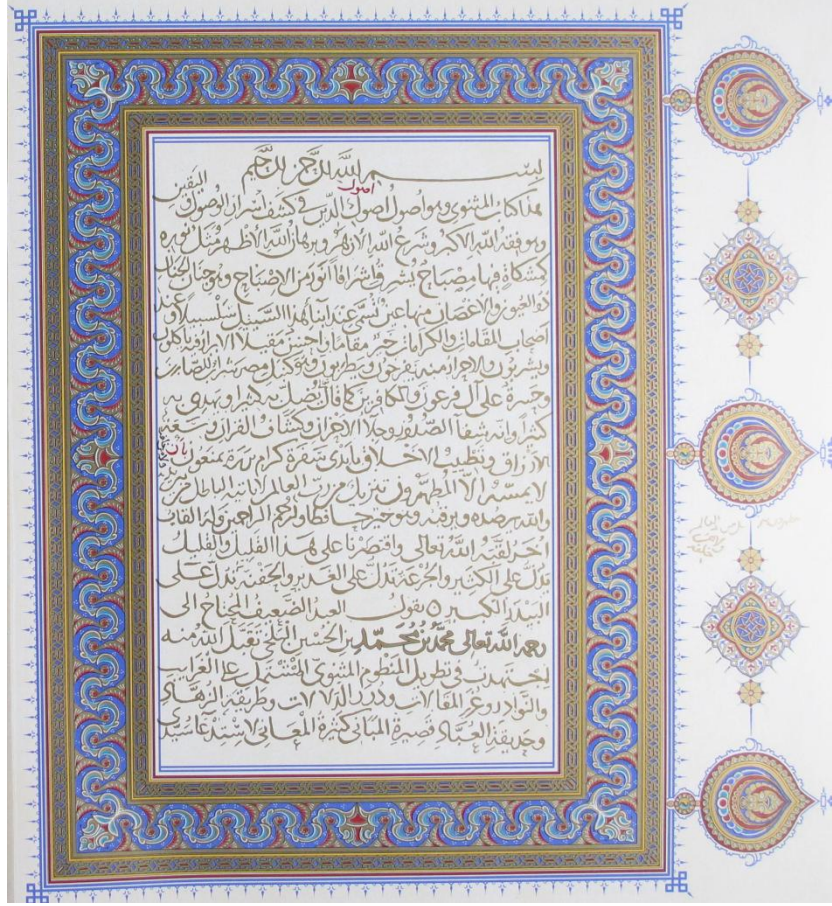 بسم الله الرحمن الرحيم
هذا كتاب المثنوى وهو اصول اصول اصول الدين فى كشف اسرار الوصول واليقين
وهو فقه الله الاكبر وشرع الله الازهر وبرهان الله الاظهر مثل نوره
كمشكاة فيها مصباح يشرق اشراقا انور من الاصباح وهو جنان الجنان
ذو العيون والاغصان منها عين تسمى عند ابناء هذا السبيل سلسبيلا وعند
اصحاب المقامات والكرامات خير مقاما واحسن مقيلا الابرار فيه ياكلون
ويشربون والاحرار منه يفرحون ويطربون وهو كنيل مصر شراب للصابرين
وحسرة على آل فرعون والكافرين كما قال يضل به كثيرا ويهدى به
كثيرا وانه شفا الصدور وجلا الاحزان وكشاف القران وسعة
الارزاق وتطييب الاخلاق بايدى سفرة كرام بررة يمنعون بان
لا يمسه الا المطهرون تنزيل من رب العالمين لا ياتيه الباطل من
والله يرصده ويرقبه وهو خير حافظا وارحم الراحمين وله القاب
اخر لقبه الله تعالى واقتصرنا على هذا القليل والقليل
يدل على الكثير والجرعة تدل على الغدير والحفنة تدل على
البيدر الكبير ه يقول العبد الضعيف المحتاج الى
رحمة الله تعالى محمد بن محمد بن الحسين البلخى تقبل الله منه
اجتهدت فى تطويل المنظوم المثنوى المشتمل على الغرايب
والنوادر وغرر المقالات ودرر الدلالات وطريقة الزهاد
وحديقة العباد قصيرة المبانى كثيرة المعانى لاستدعا سيدى